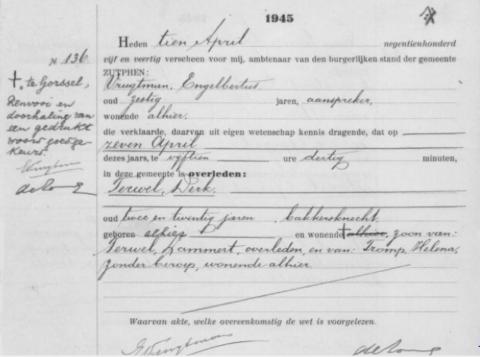 1945
N 136
Heden tien April negentienhonderd
vijf en veertig verscheen voor mij, ambtenaar van den burgerlijken stand der gemeente
ZUTPHEN:
Vrugtman, Engelbertus
oud zestig jaren, aanspreker,
wonende alhier.
die verklaarde, daarvan uit eigen wetenschap kennis dragende, dat op
zeven April
dezes jaars, te vijftien ure dertig minuten,
in deze gemeente is overleden:
Terwel, Derk.
oud twee en twintig jaren bakkersknecht
geboren en wonende alhier, zoon van:
Terwel, Lammert, overleden, en van: Tromp, Helena,
zonder beroep, wonende alhier.
Waarvan akte, welke overeenkomstig de wet is voorgelezen.
te Gorssel,
Renvooi en
doorhaling van
een gedrukt
woord goedge-
keurd.